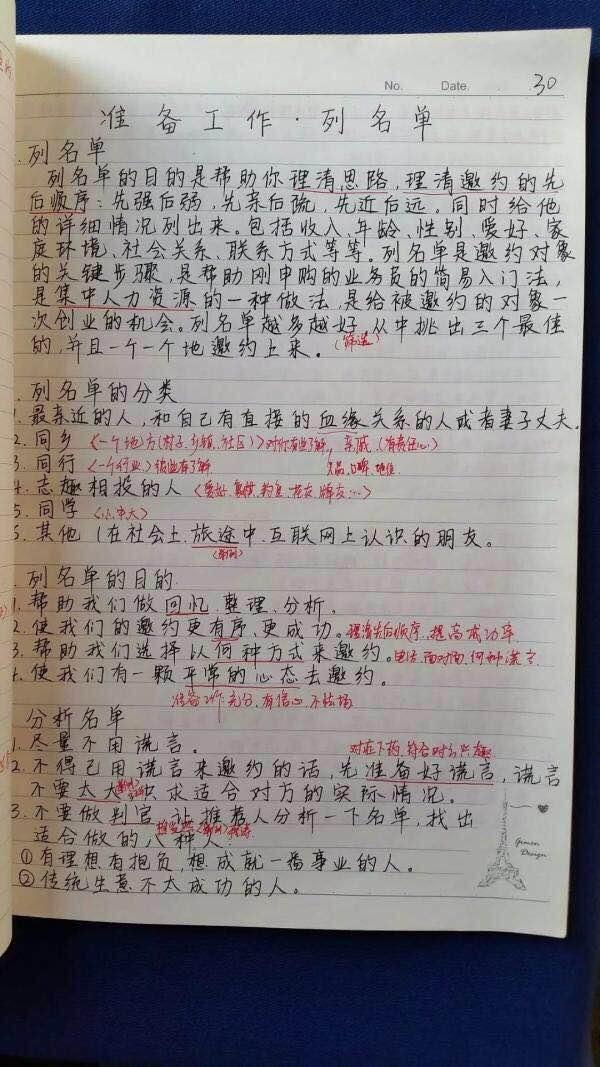 No. Date. 30
准备工作·列名单
列名单
列名单的目的是帮助你理清思路,理清邀约的先
后顺序:先强后弱,先亲后疏,先近后远。同时给他
的详细情况列出来。包括收入、年龄、性别、爱好、家
庭环境、社会关系、联系方式等等。列名单是邀约对象
的关键步骤,是帮助刚申购的业务员的简易入门法,
是集中人力资源的一种做法,是给被邀约的对象一
次创业的机会。列名单越多越好,从中挑出三个最佳
的,并且一个一个地邀约上来。(筛选)
列名单的分类
1. 最亲近的人,和自己有直接的血缘关系的人或者妻子丈夫。
2. 同乡 〈一个地方(村子、乡镇、社区)〉对你有些了解 亲戚(有责任心)
3. 同行 〈一个行业〉彼此有了解 人品、口碑、地位
4. 志趣相投的人 〈爱好、 钓鱼、 牌友…〉
5. 同学 〈小、中、大〉
6. 其他(在社会上、旅途中、互联网上认识的朋友。
(举例)
列名单的目的
1. 帮助我们做回忆、整理、分析.
2. 使我们的邀约更有序、更成功。理清先后顺序、提高成功率
3. 帮助我们选择以何种方式来邀约。电话、面对面、何种谎言
4. 使我们有一颗平常的心态去邀约。
准备工作充分、有信心、不怯场
分析名单
1. 尽量不用谎言。
对症下药、符合对方兴趣
2. 不得已用谎言来邀约的话,先准备好谎言,谎言
不要太大,以求适合对方的实际情况。
3. 不要做判官,让推荐人分析一下名单,找出
适合做的八种人:
①有理想有抱负,想成就一番事业的人。
②传统生意不太成功的人。
Gimen
Design